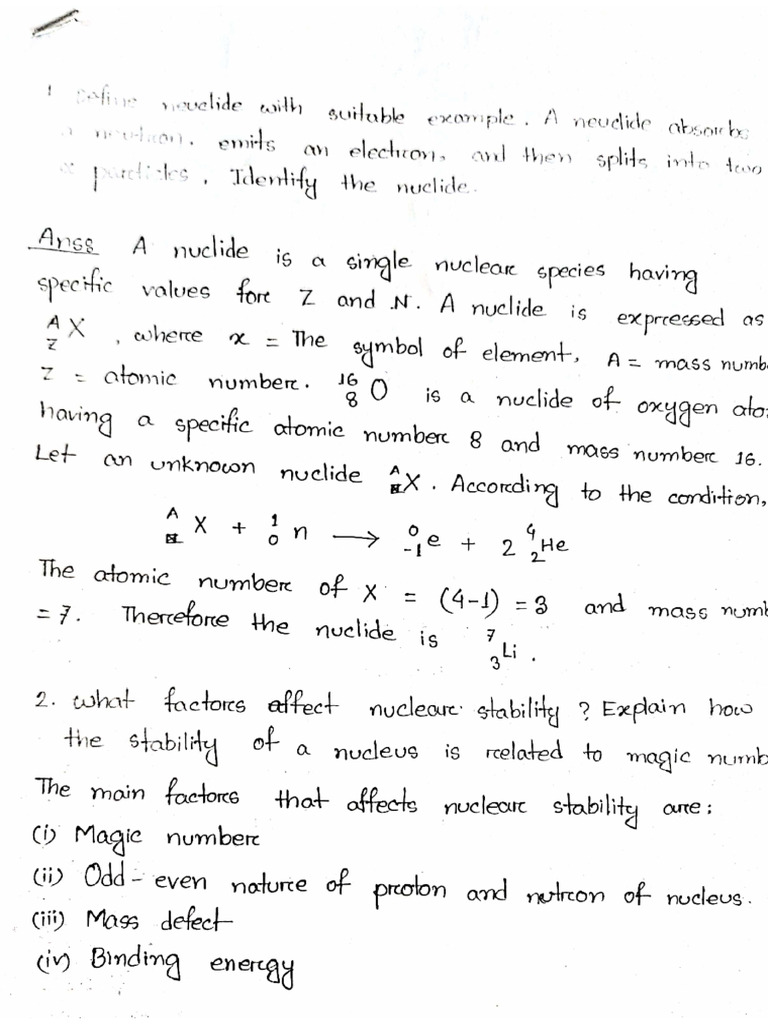 1 Define neuclide with suitable example. A neuclide absorbs
a neutron, emits an electron, and then splits into two
α particles. Identify the nuclide.
Anss A nuclide is a single nuclearc species having
specific values forc Z and N. A nuclide is exprcessed as
A Z X , wherce x = The symbol of element, A = mass numbe
Z = atomic numberc. 16 8 O is a nuclide of oxygen ato
having a specific atomic numberc 8 and mass numberc 16.
Let an unknown nuclide A X. Accorcding to the condition,
A X + 1 0 n ⟶ 0 -1 e + 2 4 2 He
The atomic numberc of X = (4-1) = 3 and mass numb
= 7. Thercefore the nuclide is 7 3 Li .
2. What factorcs affect nuclearc stability ? Explain how
the stability of a nucleus is rcelated to magic numb
The main factorcs that affects nuclearc stability arce :
(i) Magic numberc
(ii) Odd - even naturce of prcoton and nutrcon of nucleus.
(iii) Mass defect
(iv) Binding enercgy